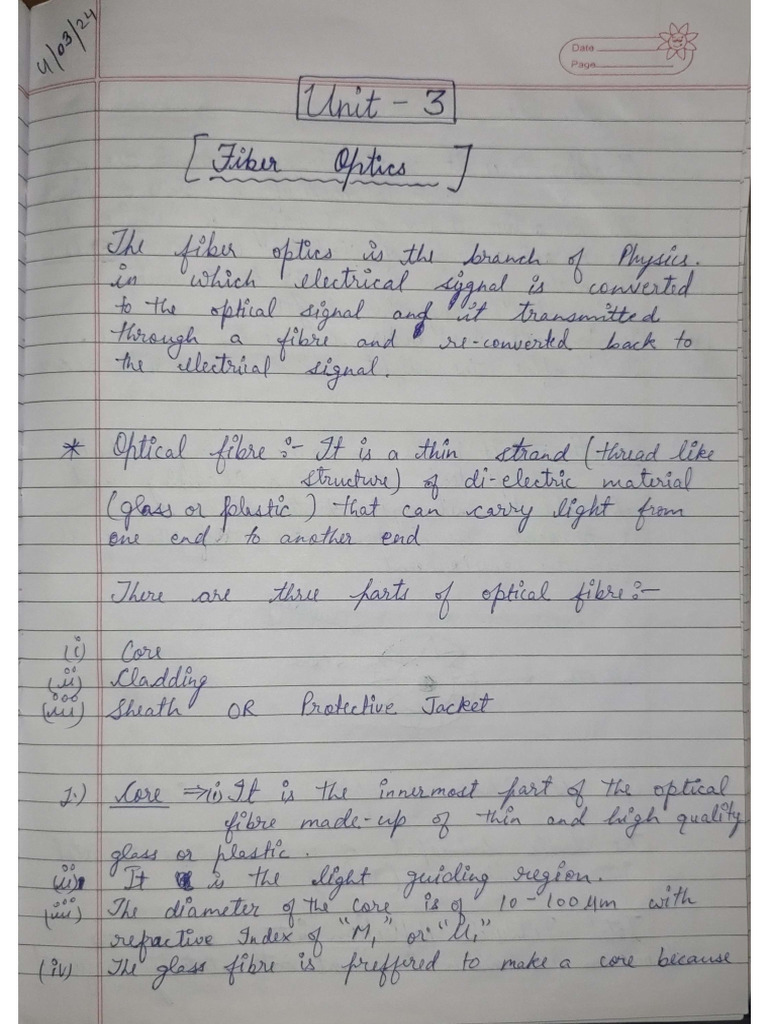 4/03/24
Date
Page
Unit - 3
[Fiber Optics]
The fiber optics is the branch of Physics.
in which electrical sygnal is converted
to the optical signal and it transmitted
through a fibre and re-converted back to
the electrical signal.
* Optical fibre :- It is a thin strand (thread like
structure) of di-electric material
(glass or plastic) that can carry light from
one end to another end
There are three parts of optical fibre :-
(i) Core
(ii) Cladding
(iii) Sheath OR Protective Jacket
1.) Core ⇒ (i) It is the innermost part of the optical
fibre made-up of thin and high quality
glass or plastic.
(ii) It is the light guiding region.
(iii) The diameter of the core is of 10-100 μm with
refractive Index of "M₁" or "μ₁"
(iv) The glass fibre is preffered to make a core because